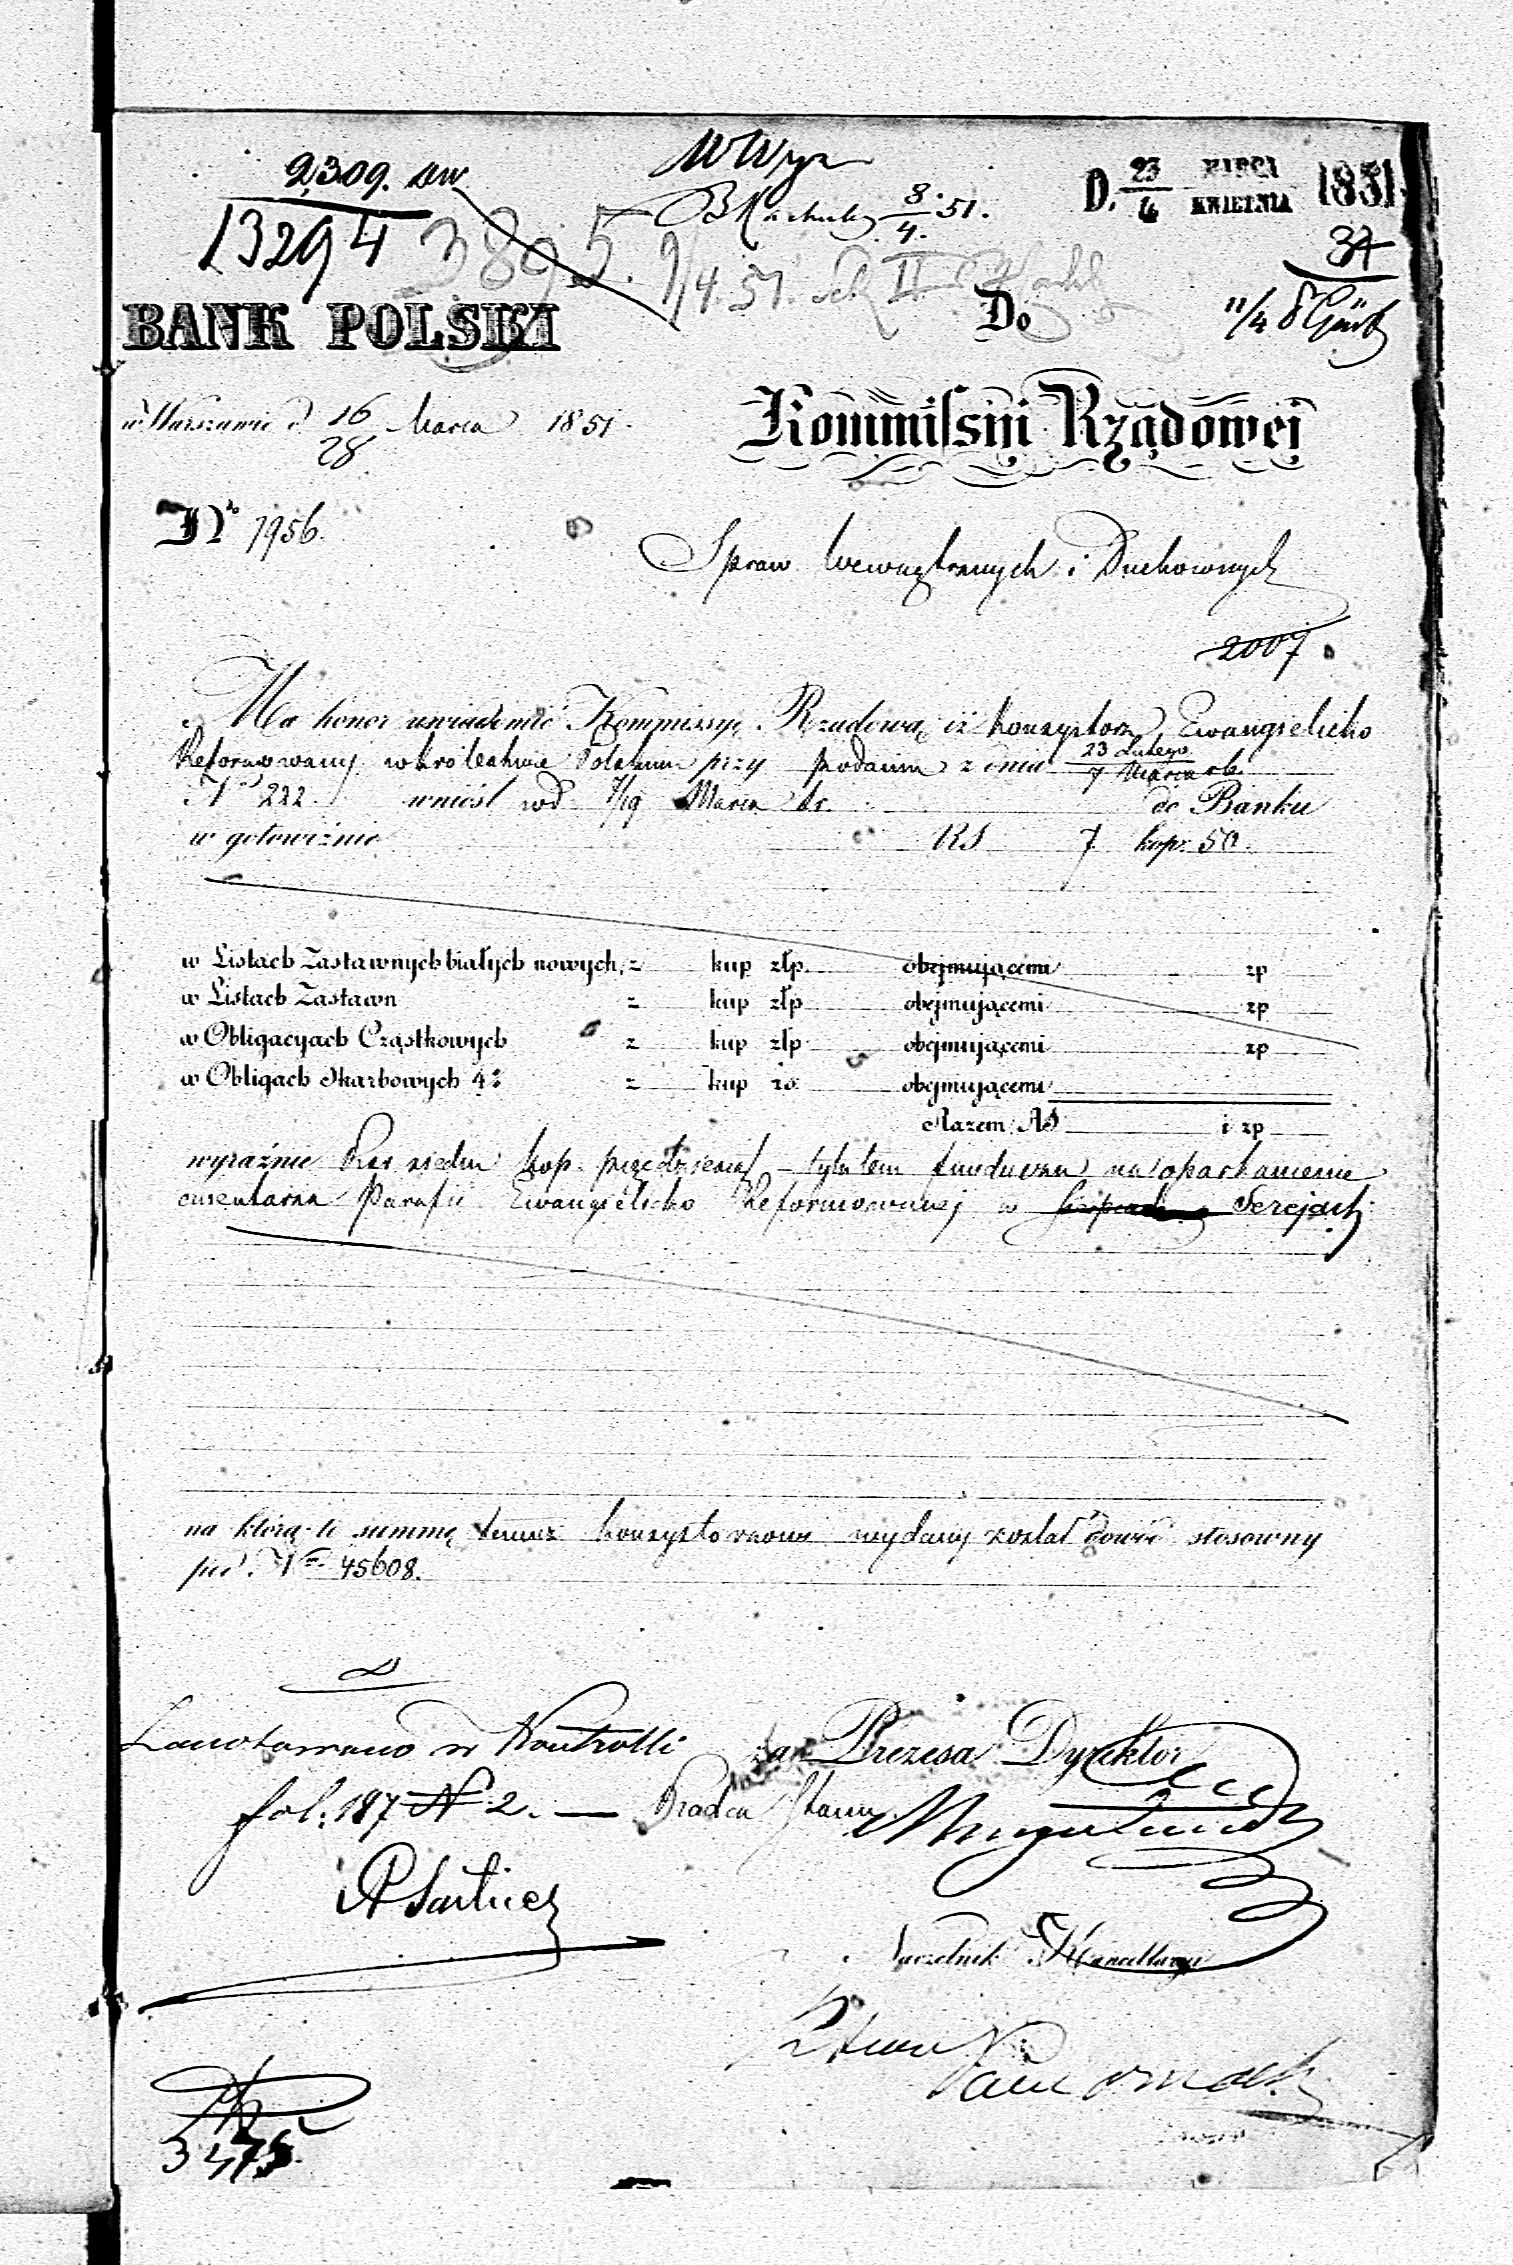 2309.
13294
3895. 9/4.51. II
WWyr
8/4.51.
D. 23/4 MARCA/KWIETNIA 1851
34
11/4
BANK POLSKI
Do
w Warszawie d 16/28 Marca 1851.
Kommissyi Rządowej
No 1956.
Spraw Wewnętrznych i Duchownych
2007.
Ma honor uwiadomić Kommissyę Rządową iż Konsystorz Ewangielicko
Reformowany w Królestwie Polskiem przy podaniu z dnia 23 Lutego/7 Marca rb.
No 222. wniósł pod 7/19 Marca br. do Banku
w gotowiźnie RS 7 kop. 50.
w Listach Zastawnych białych nowych, z kup złp. obejmującemi zp
w Listach Zastawn z kup złp obejmującemi zp
w Obligacyach Cząstkowych z kup złp obejmującemi zp
w Obligach Skarbowych 4% z kup rs. obejmującemi
Razem RS i zp
wyraźnie Rsr siedm kop. pięćdziesiąt tytułem funduszu na oparkanienie
cmentarza Parafii Ewangielicko Reformowanej w Serejach
na którą to summę temuż Konsystorzowi wydany został dowód stosowny
pod No 45608.
Zanotowano w Kontrolli
fol: 187 N 2.
za Prezesa Dyrektor
Radca Stanu
Naczelnik Kancellaryi
3475.